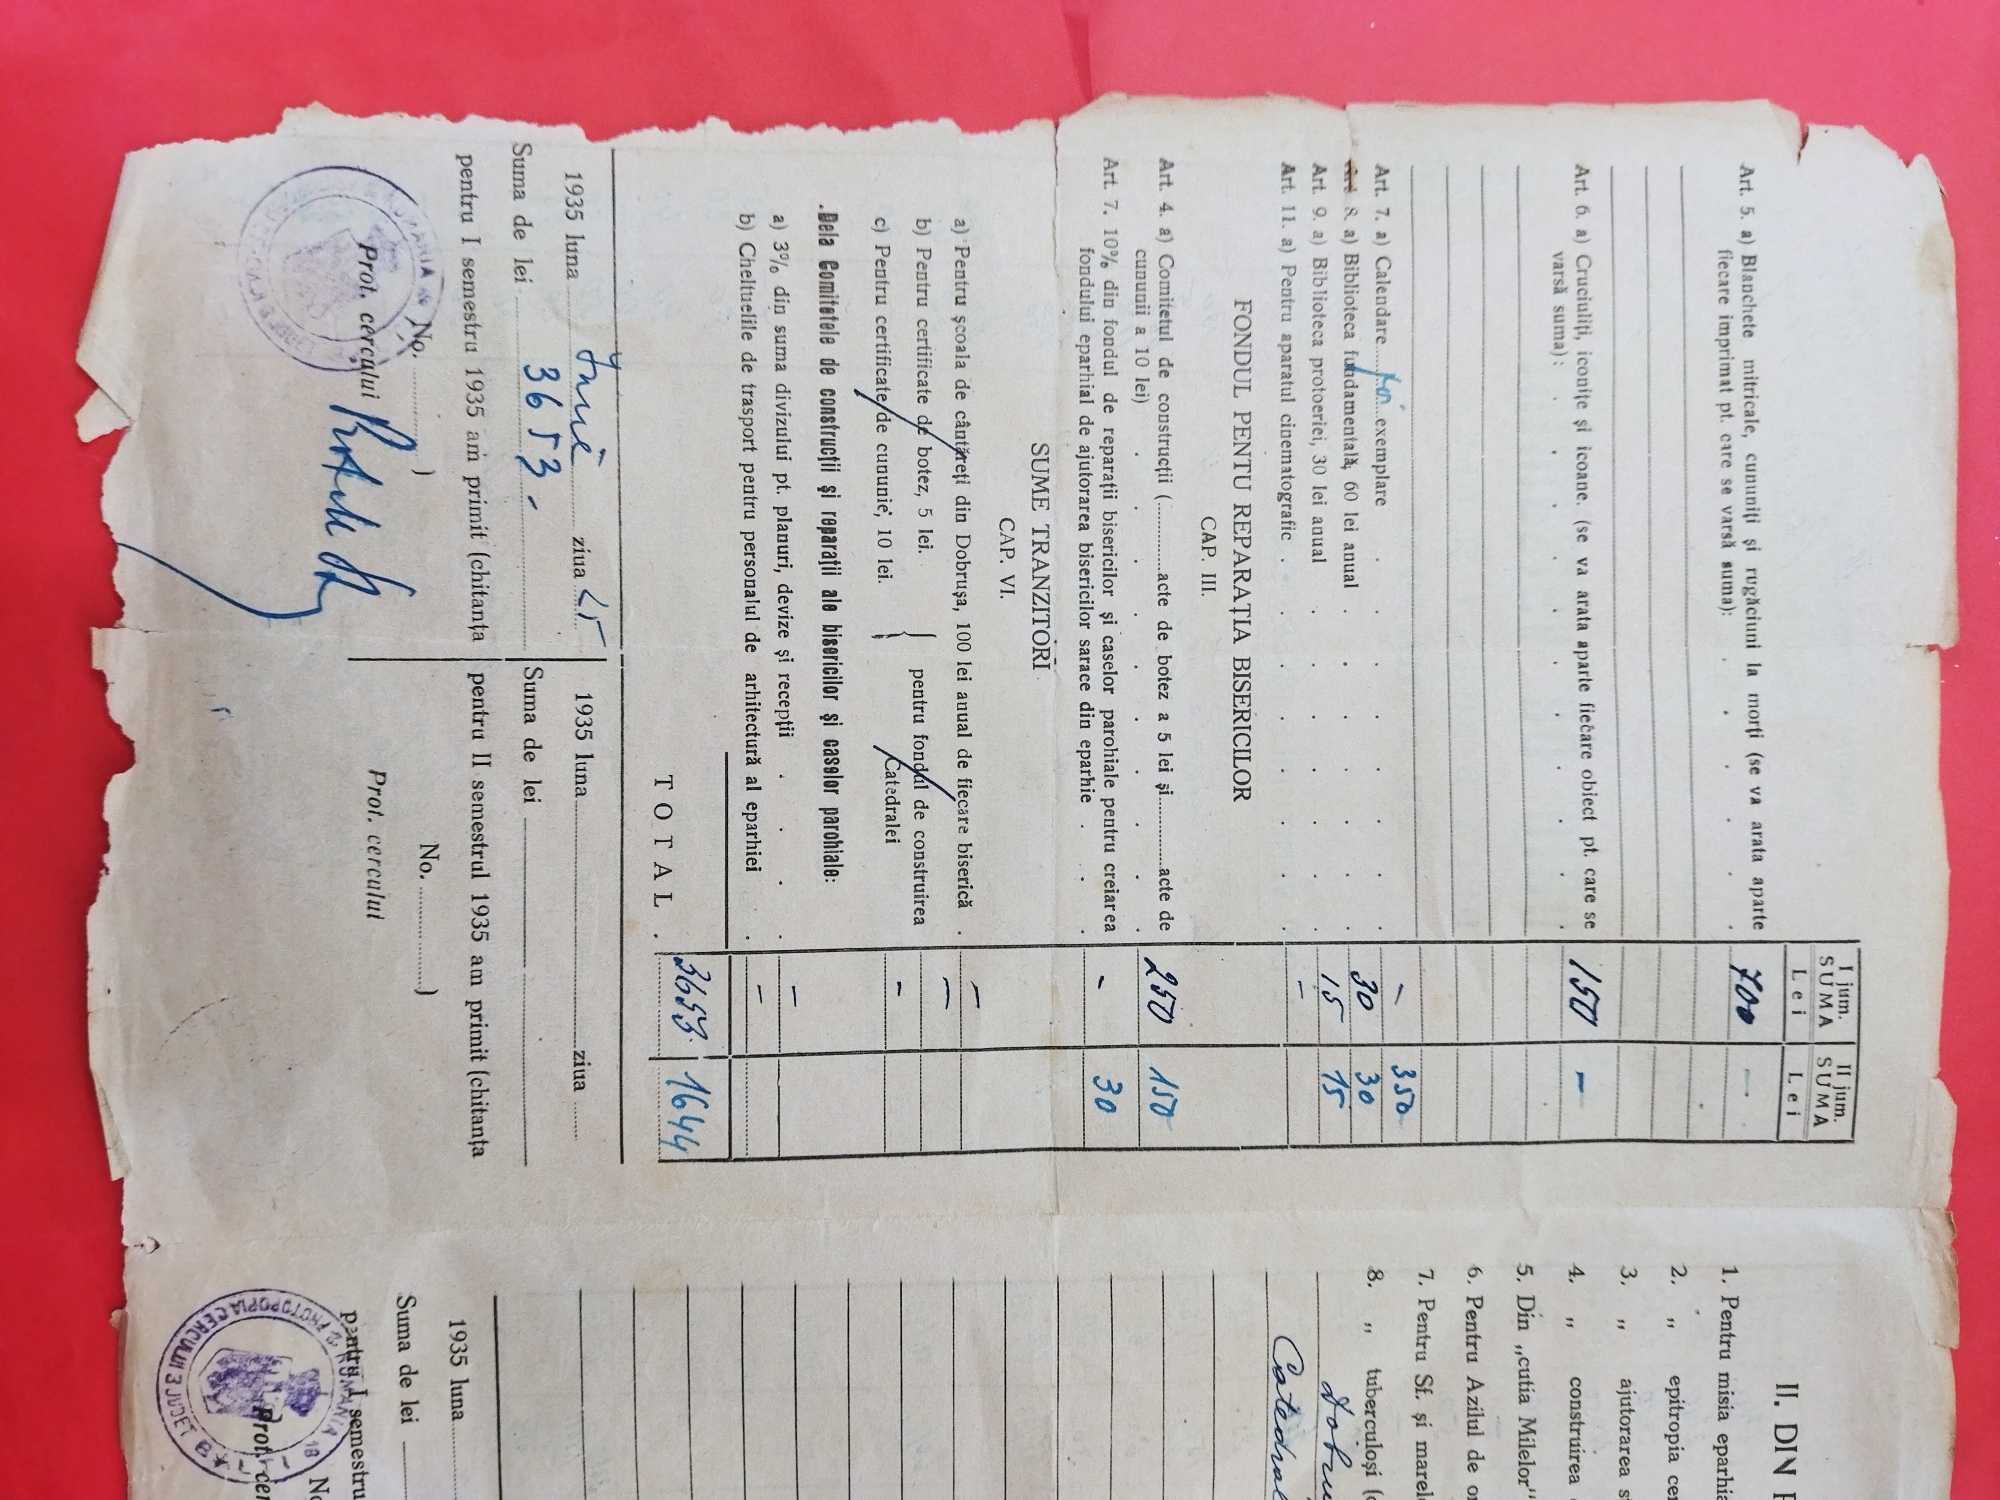 I jum.
SUMA
Lei
II jum.
SUMA
Lei
Art. 5. a) Blanchete mitricale, cununiți și rugăciuni la morți (se va arata aparte
fiecare imprimat pt. care se varsă suma): 700 —
Art. 6. a) Cruciuliți, iconițe și icoane. (se va arata aparte fiecare obiect pt. care se
varsă suma): 150 —
Art. 7. a) Calendare ........ exemplare — 350
Art. 8. a) Biblioteca fundamentală, 60 lei anual 30 30
Art. 9. a) Biblioteca protoeriei, 30 lei anual 15 15
Art. 11. a) Pentru aparatul cinematografic —
FONDUL PENTU REPARAȚIA BISERICILOR
CAP. III.
Art. 4. a) Comitetul de construcții (........acte de botez a 5 lei și........acte de
cununii a 10 lei) 250 150
Art. 7. 10% din fondul de reparații bisericilor și caselor parohiale pentru creiarea
fondului eparhial de ajutorarea bisericilor sarace din eparhie - 30
SUME TRANZITORI
CAP. VI.
a) Pentru școala de cântăreți din Dobrușa, 100 lei anual de fiecare biserică —
b) Pentru certificate de botez, 5 lei. } pentru fondul de construirea —
c) Pentru certificate de cununie, 10 lei. } Catedralei -
Dela Comitetele de construcții și reparații ale bisericilor și caselor parohiale:
a) 3% din suma divizului pt. planuri, devize și recepții —
b) Cheltuelile de trasport pentru personalul de arhitectură al eparhiei —
TOTAL. 3653 1644
1935 luna Iunie ziua 25
Suma de lei 3653.-
pentru I semestru 1935 am primit (chitanța
No. ........)
Prot. cercului
1935 luna ziua
Suma de lei
pentru II semestrul 1935 am primit (chitanța
No. ........)
Prot. cercului
II. DIN
1. Pentru misia eparhia
2. „ epitropia
3. „ ajutorarea
4. „ construirea
5. Din „cutia Milelor"
6. Pentru Azilul de
7. Pentru Sf. și
8. „ tuberculoși
1935 luna
Suma de lei
pentru I semestru
Prot.
ROMANIA
PROTOPOPIA CERCULUI 3 JUDET